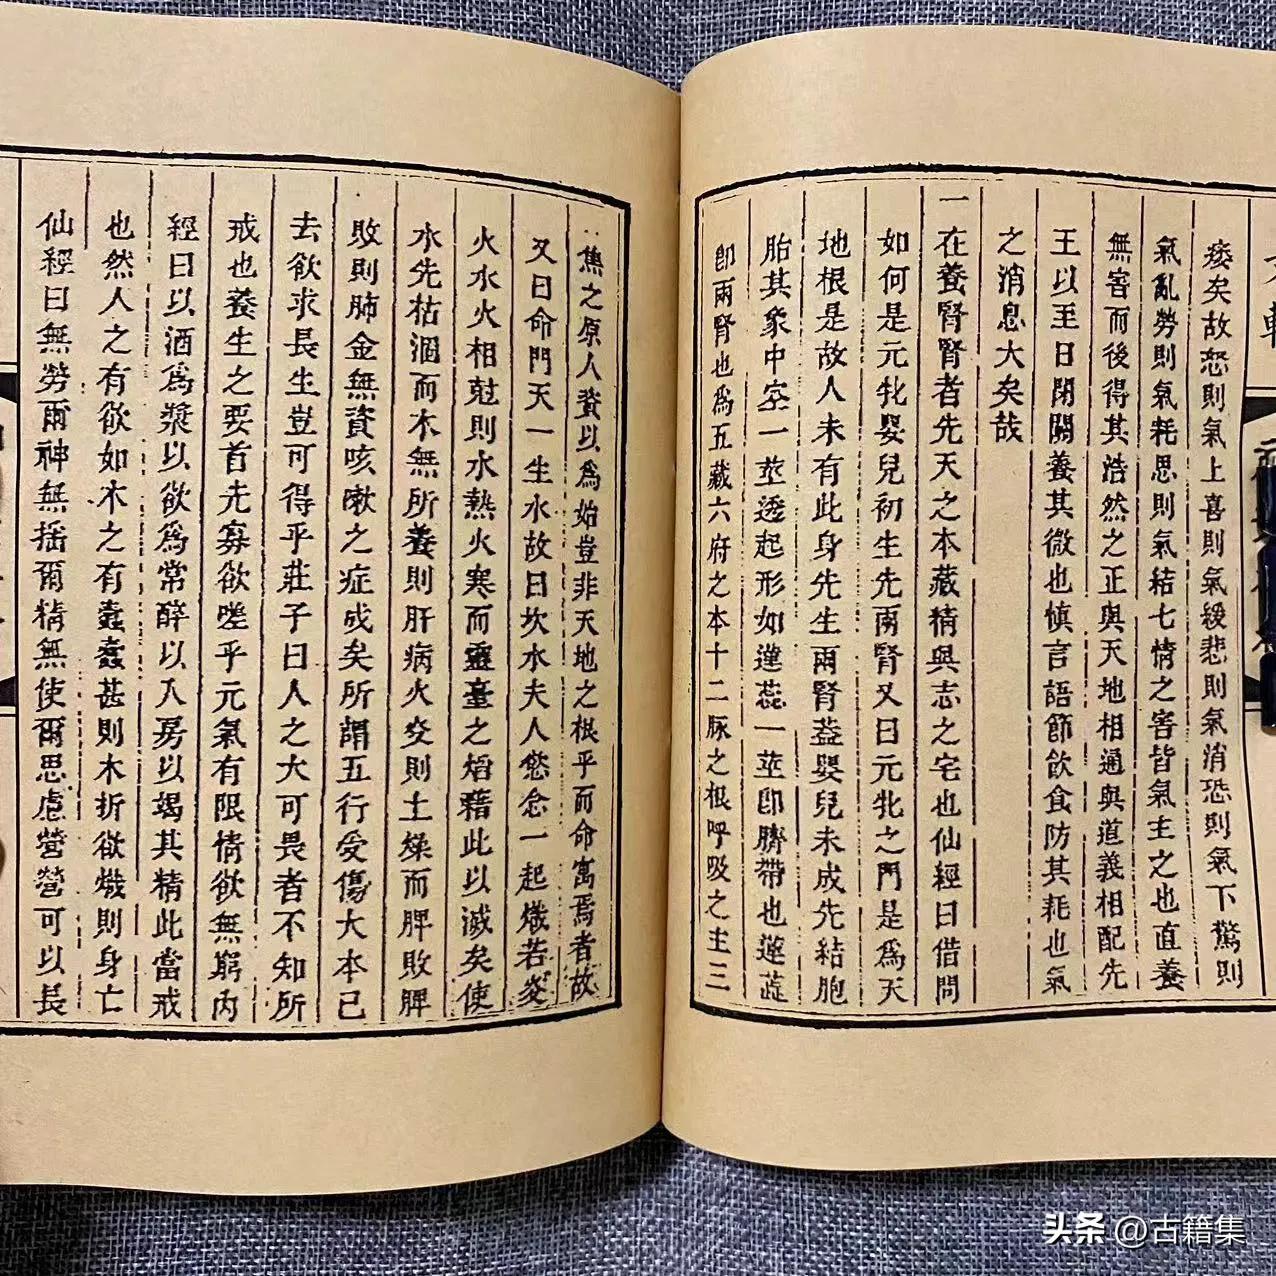 痿矣故怒則氣上喜則氣緩悲則氣消恐則氣下驚則
氣亂勞則氣耗思則氣結七情之害皆氣主之也直養
無害而後得其浩然之正與天地相通與道義相配先
王以至日閉關養其微也慎言語節飲食防其耗也氣
之消息大矣哉
一在養腎腎者先天之本藏精與志之宅也仙經曰借問
如何是元牝嬰兒初生先兩腎又曰元牝之門是為天
地根是故人未有此身先生兩腎蓋嬰兒未成先結胞
胎其象中空一莖透起形如蓮蕊一莖卽臍帶也蓮蕊
卽兩腎也為五藏六府之本十二脈之根呼吸之主三
焦之原人資以為始豈非天地之根乎而命寓焉者故
又曰命門天一生水故曰坎水夫人慾念一起熾若炎
火水火相尅則水熱火寒而靈臺之焰藉此以滅矣使
水先枯涸而木無所養則肝病火炎則土燥而脾敗脾
敗則肺金無資咳嗽之症成矣所謂五行受傷大本已
去欲求長生豈可得乎莊子曰人之大可畏者不知所
戒也養生之要首先寡欲嗟乎元氣有限情欲無窮內
經曰以酒為漿以欲為常醉以入房以竭其精此當戒
也然人之有欲如木之有蠹蠹甚則木折欲熾則身亡
仙經曰無勞爾神無搖爾精無使爾思慮營營可以長
头条 @古籍集